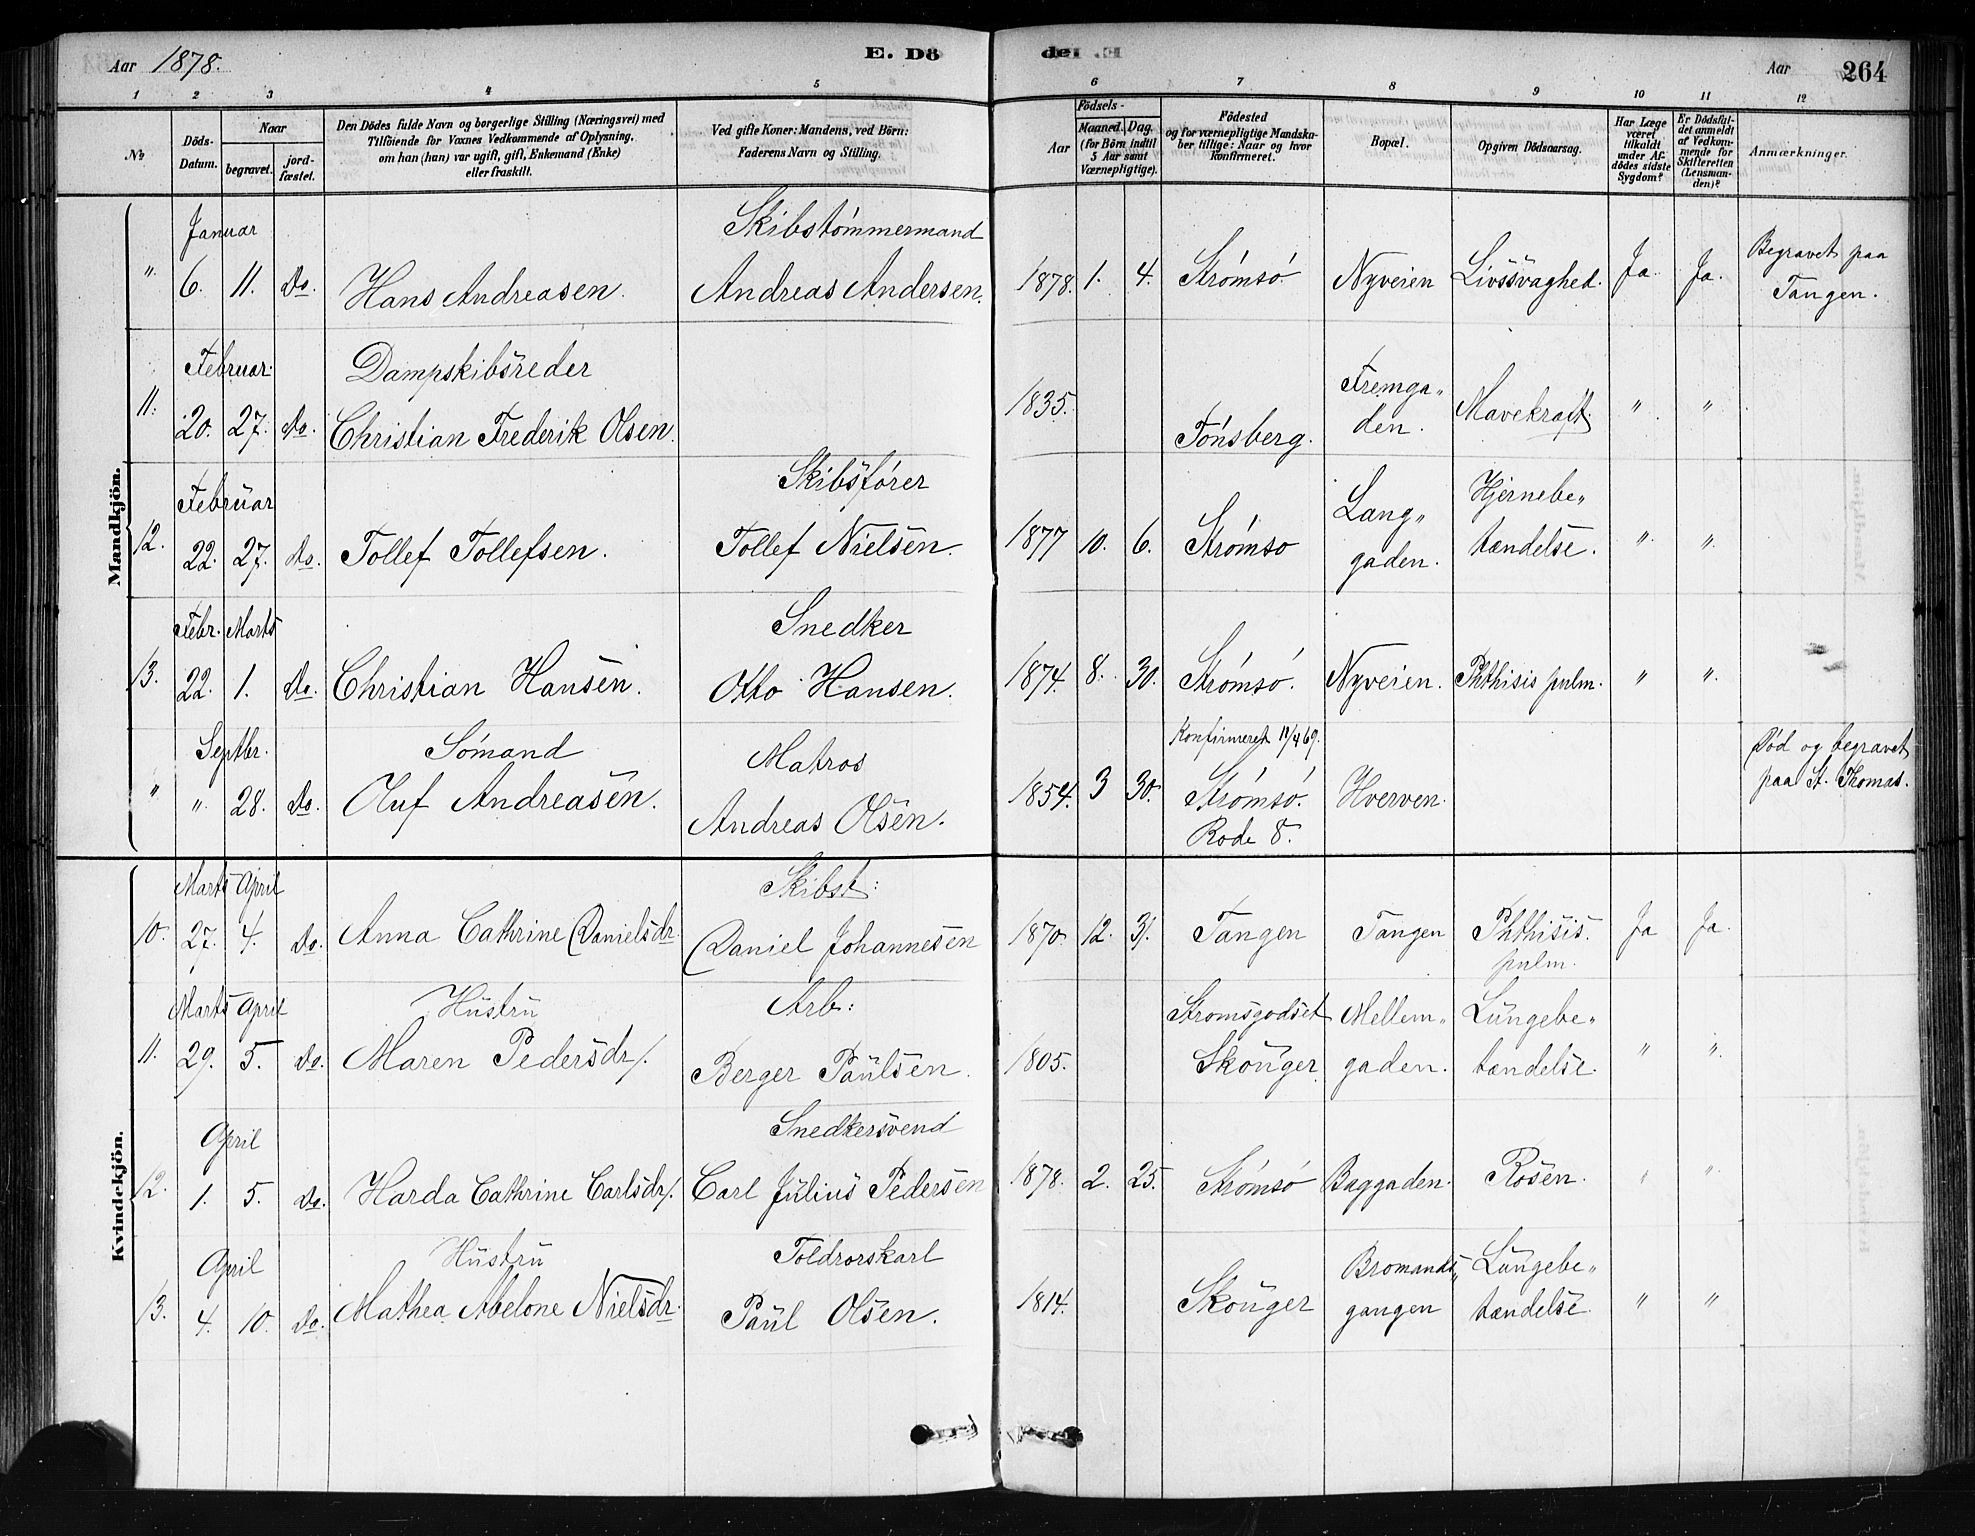 Aar 1878. E. Dö
de. E
Aar 264
1 2 3 4 5 6 7 8 9 10 11 12
No
Döds-
Datum.
Naar
begravet.
jord-
fæstet.
Den Dödes fulde Navn og borgerlige Stilling (Næringsvei) med
Tilföiende for Voxnes Vedkommende af Oplysning,
om han (han) var ugift, gift, Enkemand (Enke)
eller fraskilt.
Ved gifte Koner: Mandens, ved Börn:
Faderens Navn og Stilling.
Födsels-
Aar
Maaned. Dag.
(for Börn indtil
5 Aar samt
Værnepligtige).
Födested
og for værnepligtige Mandska-
ber tillige: Naar og hvor
konfirmeret.
Bopæl.
Opgiven Dödsaarsag.
Har Læge
været
tilkaldt
under Af-
dödes sidste
Sygdom?
Er Dödsfal-
det anmeldt
af Vedkom-
mende for
Skifteretten
(Lensman-
den)?
Anmærkninger.
Mandkjön.
Januar Skibstømmermand
" 6. 11. Do. Hans Andreasen. Andreas Andersen. 1878. 1. 4. Strømsø. Nyveien Livssvaghed. Ja. Ja. Begravet paa
Tangen.
Februar. Dampskibsreder
11. 20. 27. Do. Christian Frederik Olsen. 1835. Tønsberg. Fremga„
den. Mavekræft. " "
Februar Skibsfører
12. 22. 27. Do. Tollef Tollefsen. Tollef Nielsen. 1877 10. 6. Strømso Lang„
gaden. Hjernebe„
tændelse. " "
Febr. Marts Snedker
13. 22. 1. Do. Christian Hansen. Otto Hansen. 1874. 8. 30. Strømsø. Nyveien. Phthisis pulm. " "
Septbr. Sømand Matros Konfirmeret 11/4 69.
" " 28. Do. Oluf Andreasen. Andreas Olsen. 1854. 3 30. Strømsø.
Rode 8. Hverven. Død og begravet
paa St. Thomas.
Kvindekjön.
Marts April Skibst:
10. 27. 4. Do. Anna Cathrine Danielsdr. Daniel Johannesen 1870. 12. 31. Tangen Tangen Phthisis.
pulm. Ja Ja.
Marts April Hustru Arb:
11. 29. 5. Do. Maren Pedersdr. Berger Paulsen. 1805. Strømsgodset
Skouger. Mellem„
gaden. Lungebe„
tændelse. " "
April Snedkersvend
12. 1. 5. Do. Harda Cathrine Carlsdr. Carl Julius Pedersen 1878. 2. 25. Strømsø Baggaden. Rosen. " "
April Hustru Toldrorskarl
13. 4. 10. Do. Mathea Abelone Nielsdr. Paul Olsen. 1814. Skouger Bromands„
gangen Lungebe„
tændelse. " "